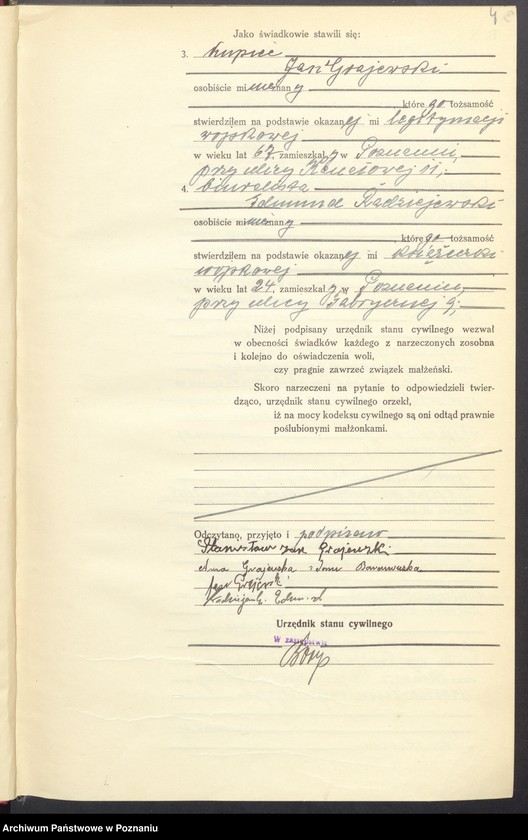 4
Jako świadkowie stawili się:
3. kupiec
Jan Grajewski
osobiście mi nieznany
, którego tożsamość
stwierdziłem na podstawie okazanej mi legitymacji
wojskowej
w wieku lat 67, zamieszkały w Poznaniu,
przy ulicy 11;
4. biuralista
Edmund Radziejewski
osobiście mi nieznany
, którego tożsamość
stwierdziłem na podstawie okazanej mi książeczki
wojskowej
w wieku lat 24, zamieszkały w Poznaniu,
przy ulicy Fabrycznej 9;
Niżej podpisany urzędnik stanu cywilnego wezwał
w obecności świadków każdego z narzeczonych zosobna
i kolejno do oświadczenia woli,
czy pragnie zawrzeć związek małżeński.
Skoro narzeczeni na pytanie to odpowiedzieli twier-
dząco, urzędnik stanu cywilnego orzekł,
iż na mocy kodeksu cywilnego są oni odtąd prawnie
poślubionymi małżonkami.
Odczytano, przyjęto i podpisano
Stanisław Jan Grajewski
Anna Grajewska z domu
Jan Grajewski
Edmund
Urzędnik stanu cywilnego
W zastępstwie
Archiwum Państwowe w Poznaniu